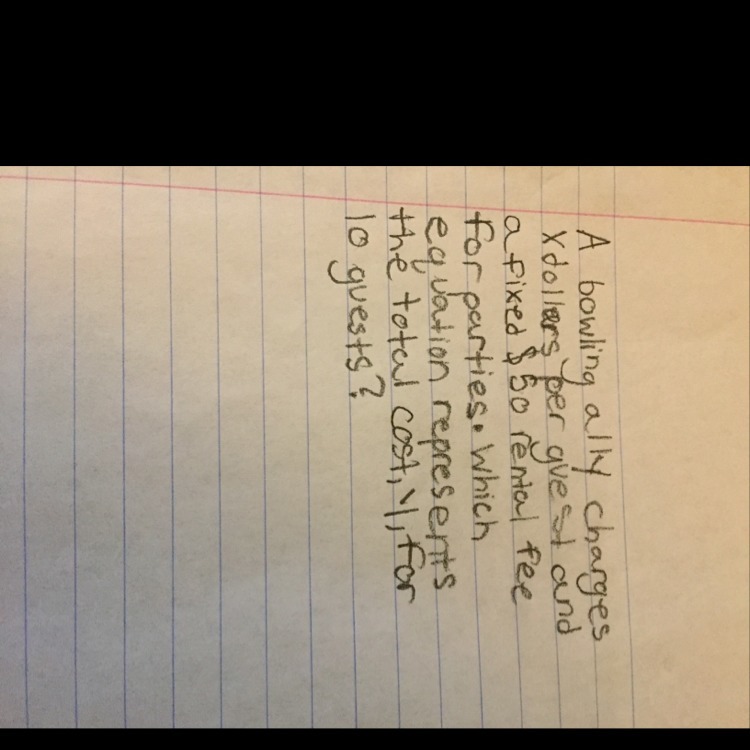 A bowling ally charges
x dollars per guest and
a fixed $50 rental fee
for parties. Which
equation represents
the total cost, y, for
10 guests?